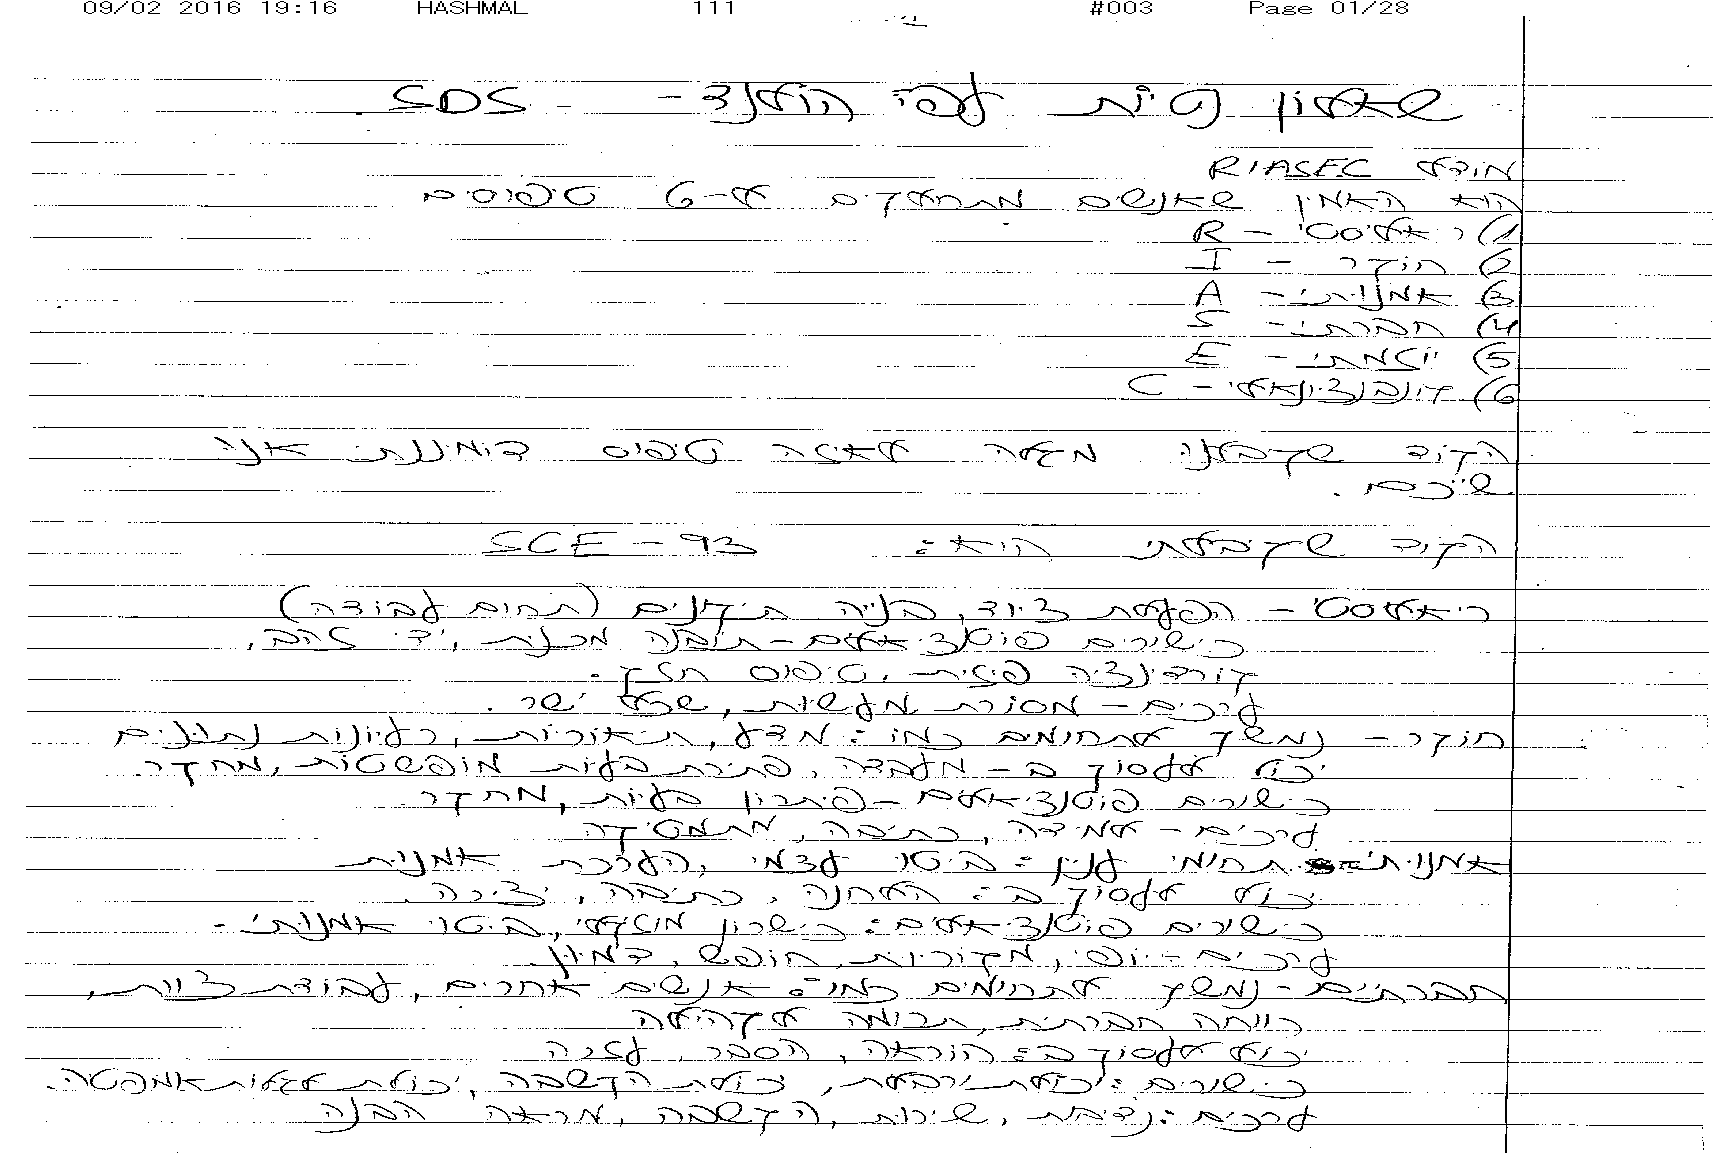 09/02 2016 19:16 HASHMAL 111 #003 Page 01/28
שאלון נטיות לפי הולנד - SDS
מודל RIASEC
הוא האמין שאנשים מתחלקים ל-6 טיפוסים
1) ריאליסטי - R
2) חוקר - I
3) אמנותי - A
4) חברתי - S
5) יוזמתי - E
6) קונבנציונאלי - C
הקוד שקיבלנו מגלה לאיזה טיפוס דומיננטי אנו
שייכים.
הקוד שקיבלתי הוא: SCE - 93
ריאלסטי - הפעלת ציוד, בנייה תיקונים (תחום עבודה)
כישורים פוטנציאלים - תובנה מכנית, ידי זהב,
קורדינציה פיזית, טיפוס חזק.
ערכים - מסורת מעשיות, שכל ישר.
חוקר - נמשך לתחומים כמו: מדע, תיאוריות, רעיונות נתונים
יכול לעסוק ב - מעבדה, פתירת בעיות מופשטות, מחקר.
כישורים פוטנציאלים - פיתרון בעיות, מחקר
ערכים - למידה, כתיבה, מתמטיקה
אמנותי תחומי ענין: ביטוי עצמי, הערכת אמנות
יכול לעסוק ב: הלחנה, כתיבה, יצירה.
כישורים פוטנציאלים: כישרון מוזיקלי, ביטוי אמנותי -
ערכים - יופי, מקוריות, חופש, דמיון
חברתיים - נמשך לתחומים כמו: אנשים אחרים, עבודת צוות,
רווחה חברתית, תרומה לקהילה
יכול לעסוק ב: הוראה, הסבר, עזרה
כישורים: יכולת ורבלית, יכולת הקשבה, יכולת לגלות אמפטיה.
ערכים: נדיבות, שירות, הקשבה, מראה הבנה